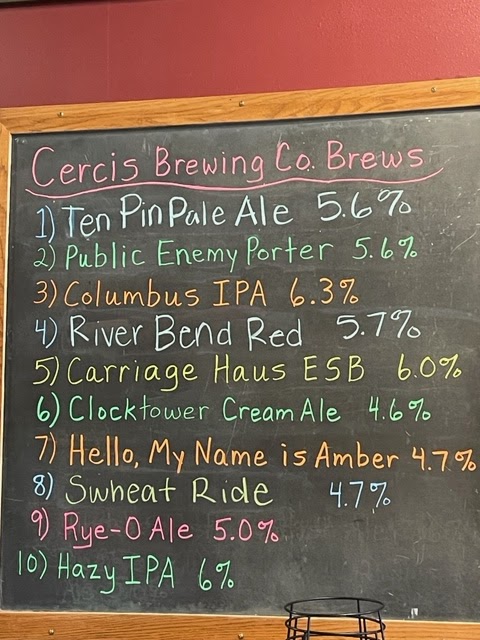 Cercis Brewing Co. Brews
1) Ten Pin Pale Ale 5.6%
2) Public Enemy Porter 5.6%
3) Columbus IPA 6.3%
4) River Bend Red 5.7%
5) Carriage Haus ESB 6.0%
6) Clocktower Cream Ale 4.6%
7) Hello, My Name is Amber 4.7%
8) Swheat Ride 4.7%
9) Rye-O Ale 5.0%
10) Hazy IPA 6%